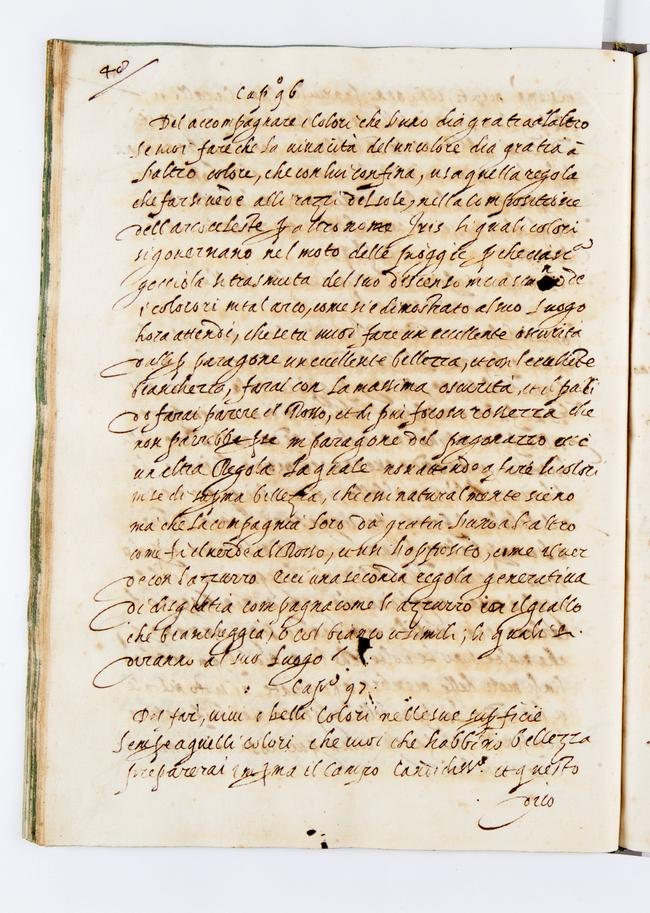 48
Cap.º 96
Del accompagnare i Colori che l'uno dia gratia al'altro
Se vuoi fare che la vinacità del un colore dia gratia à
l'altro colore, che con lui confina, usa quella regola
che farsi vede alli razzi del sole, nella compositione
dell arco celeste p altro nome Iris li quali colori
si governano nel moto delle pioggie p che ciasc.ª
gocciola si trasmuta del suo discenso in ciascuno de
i colorori in tal arco, come si è demostrato al suo luogo
hora attendi, che se tu vuoi fare un eccellente oscurità
dalli p paragone un eccellente bellezza, et con l'eccellēte
bianchezza, farai con la massima oscurità, et il palli
do farai parere il Rosso, et di più focosa rossezza che
non parrebbe p se in paragone del pagonazzo eci è
un altra Regola la quale non attende a fare li colori
in se di somma bellezza, che cui naturalmente sieno
ma che la compagnia loro dà gratia l'uno al'altro
come fa il verde al Rosso, et cosi l'opposito, come il ver
de con l'azzurro Ecci una seconda regola generativa
di disgratia compagna come l'azzurro con il giallo
che biancheggia, ò col bianco et simili, li quali si
diranno al suo luogo
Cap.º 97
Del far, vivi e belli Colori nelle sue supficie
Sempre a quelli colori che vuoi che habbino bellezza
preparerai in pma il Campo Candidiss.º et questo
dico